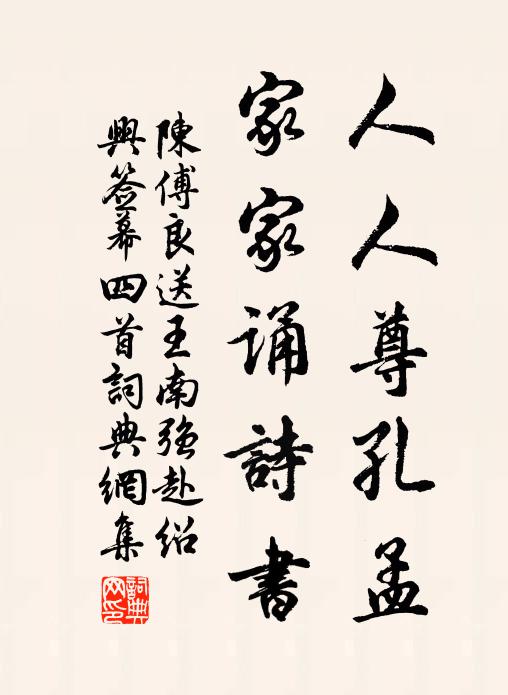 人人尊孔孟
家家誦詩書
陳傅良送王南強赴紹
興簽幕四首詞典網集
詞典網印